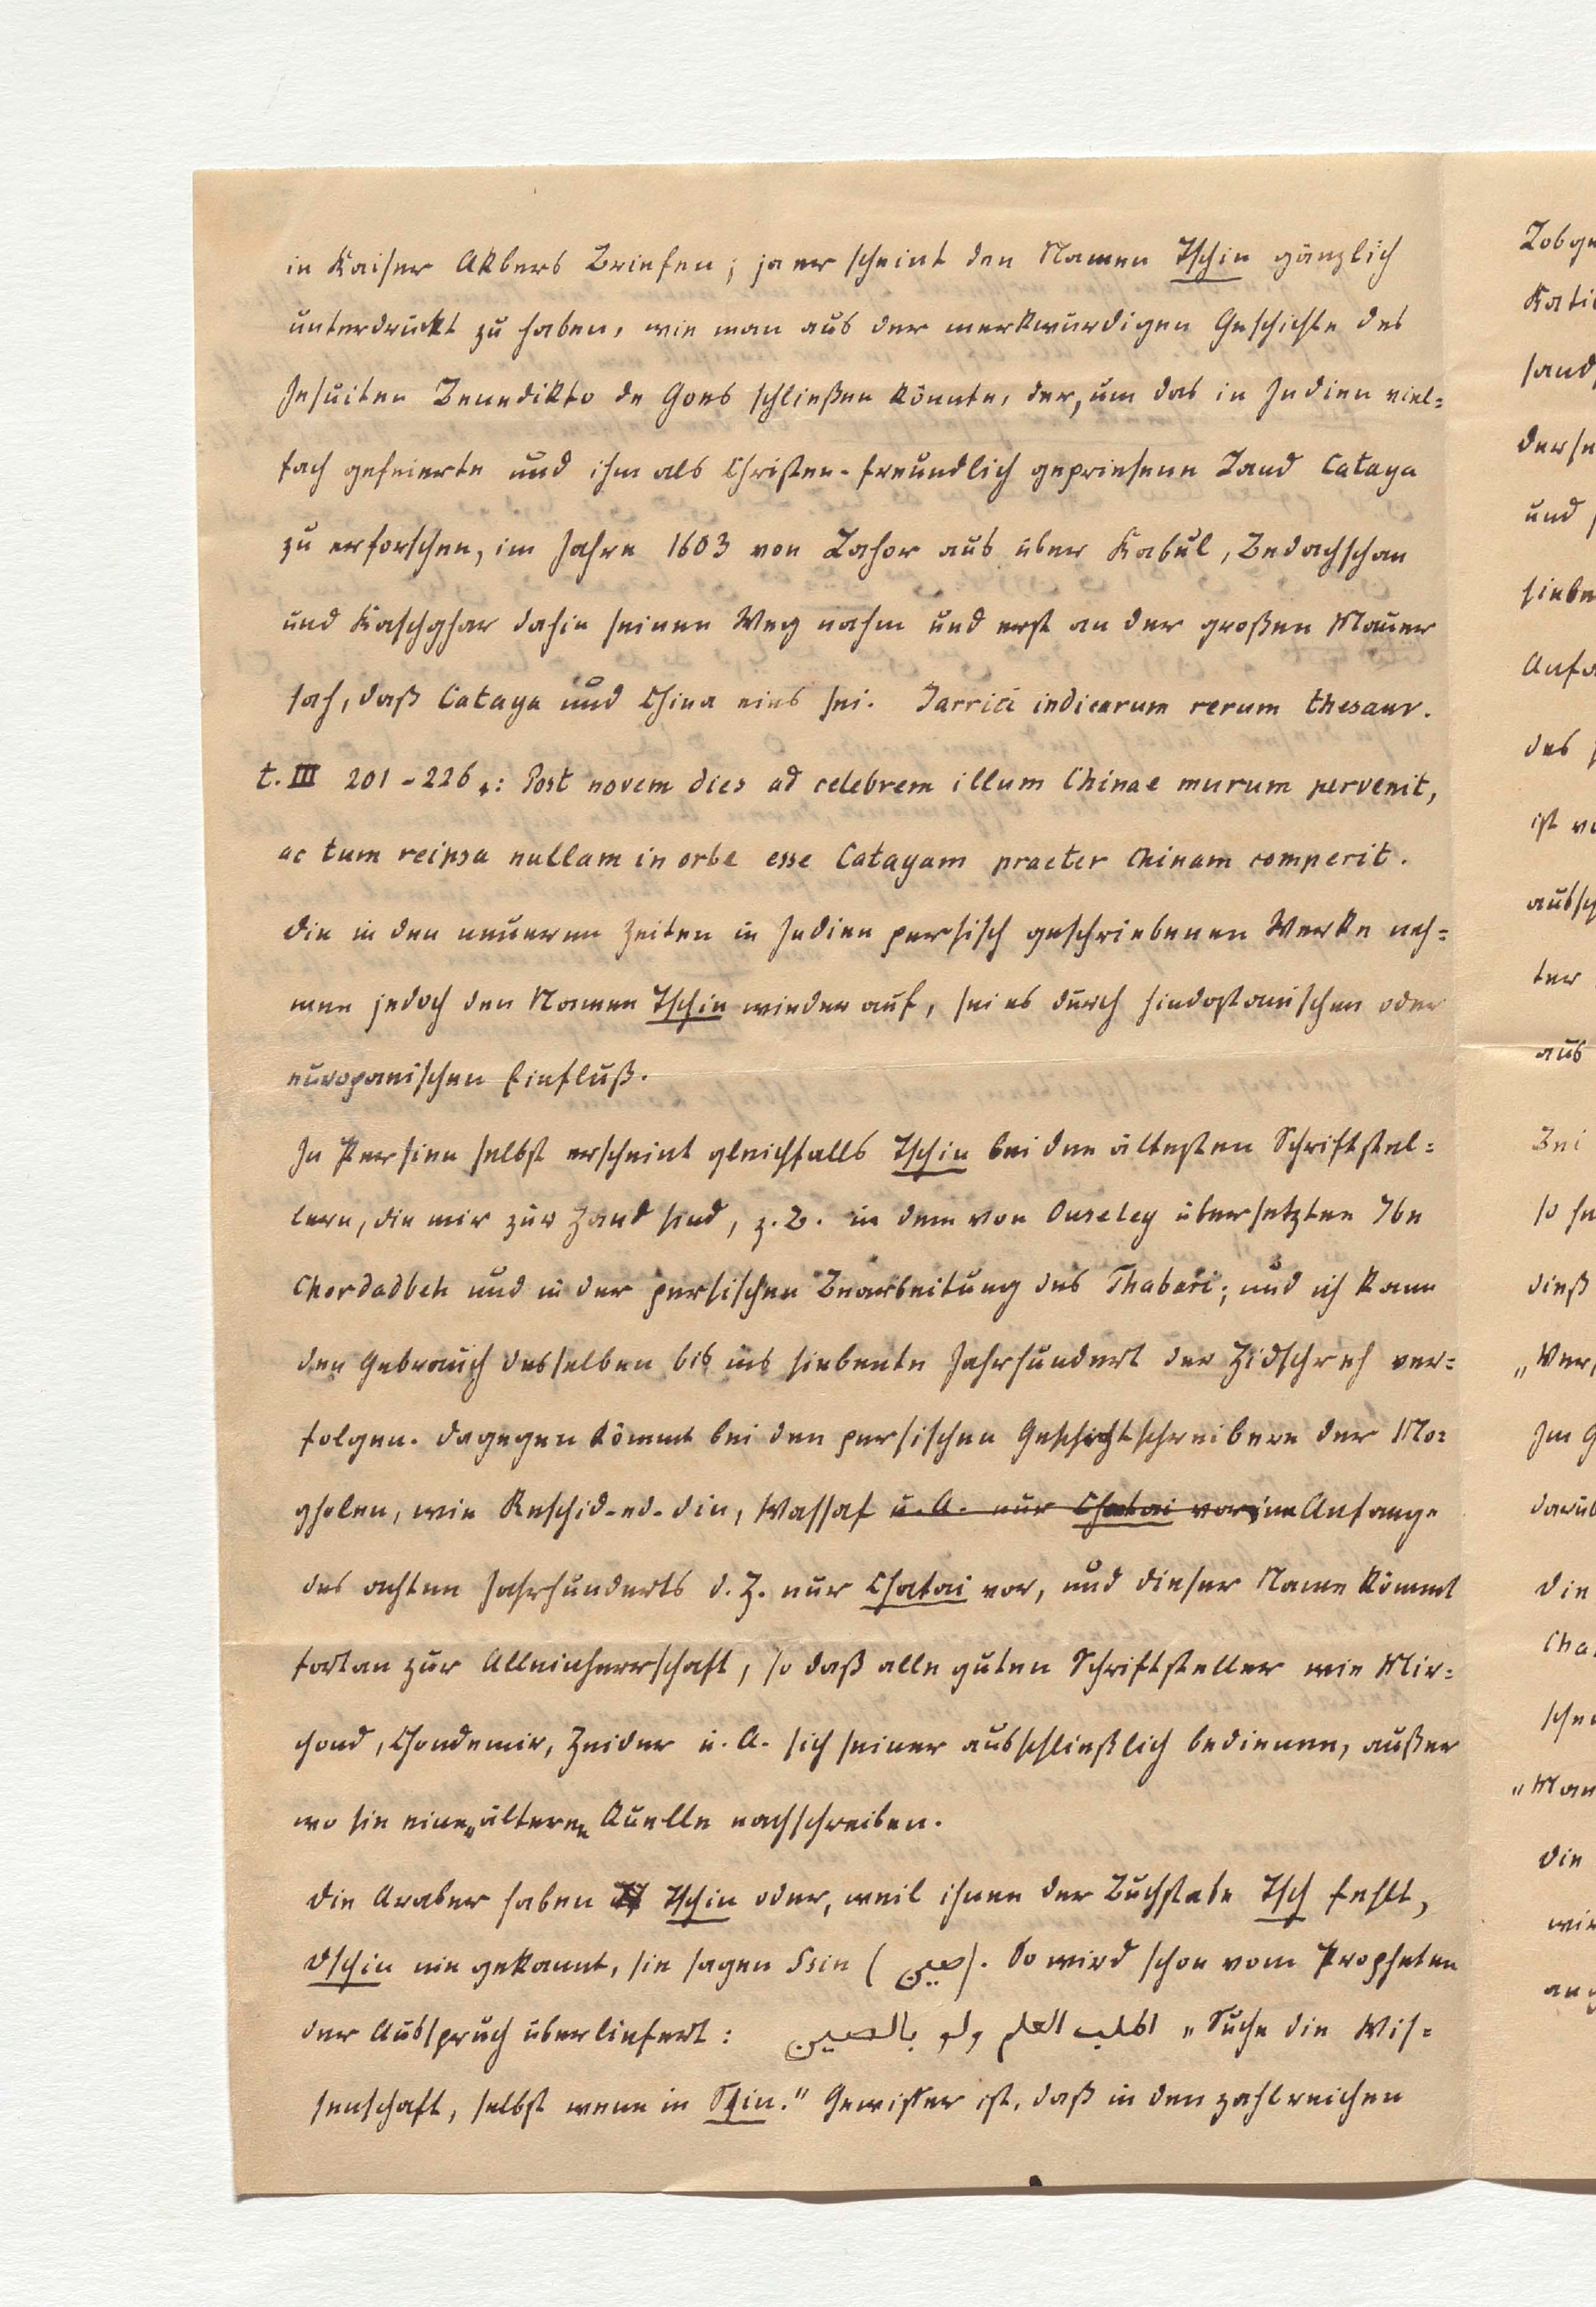 in Kaiser Akbers Briefen; ja er scheint den Namen Tschin gänzlich
unterdrückt zu haben, wie man aus der merkwürdigen Geschichte des
Jesuiten Benedikto de Goes schließen könnte, der, um das in Indien viel=
fach gefeierte und ihm als Christen-freundlich gepriesene Land Cataya
zu erforschen, im Jahre 1603 von Lahor aus über Kabul, Bedachschan
und Kaschghar dahin seinen Weg nahm und erst an der großen Mauer
sah, daß Cataya und China eins sei. Jarrici indicarum rerum thesaur.
t. III 201-226.: Post novem dies ad celebrem illum Chinae murum pervenit,
ac tum reipsa nullam in orbe esse Catayam praeter Chinam comperit.
Die in den neueren Zeiten in Indien persisch geschriebenen Werke neh=
men jedoch den Namen Tschin wieder auf, sei es durch hindostanischen oder
europäischen Einfluß.
In Persien selbst erscheint gleichfalls Tschin bei den ältesten Schriftstel=
lern, die mir zur Hand sind, z. B. in dem von Ouseley übersetzten Ibn
Chordadbeh und in der persischen Bearbeitung des Thabari; und ich kann
den Gebrauch desselben bis ins siebente Jahrhundert der Hidschreh ver=
folgen. Dagegen kömmt bei den persischen Geschichtschreibern der Mo=
gholen, wie Reschid-ed-din, Wassaf u. A. nur Chatai vor im Anfange
des achten Jahrhunderts d. H. nur Chatai vor, und dieser Name kömmt
fortan zur Alleinherrschaft, so daß alle guten Schriftsteller wie Mir=
chond, Chondemir, Heider u. A. sich seiner ausschließlich bedienen, außer
wo sie einen älteren Quelle nachschreiben.
Die Araber haben Tschin oder, weil ihnen der Buchstabe Tsch fehlt,
Dschin nie gekannt, sie sagen Ssin (صين). So wird schon vom Propheten
der Ausspruch überliefert: اطلب العلم ولو بالصين „Suche die Wis=
senschaft, selbst wenn in Ssin." Gewisser ist, daß in den zahlreichen
und
des
ist
ter
aus
Bei
dieß
Im
Die
die